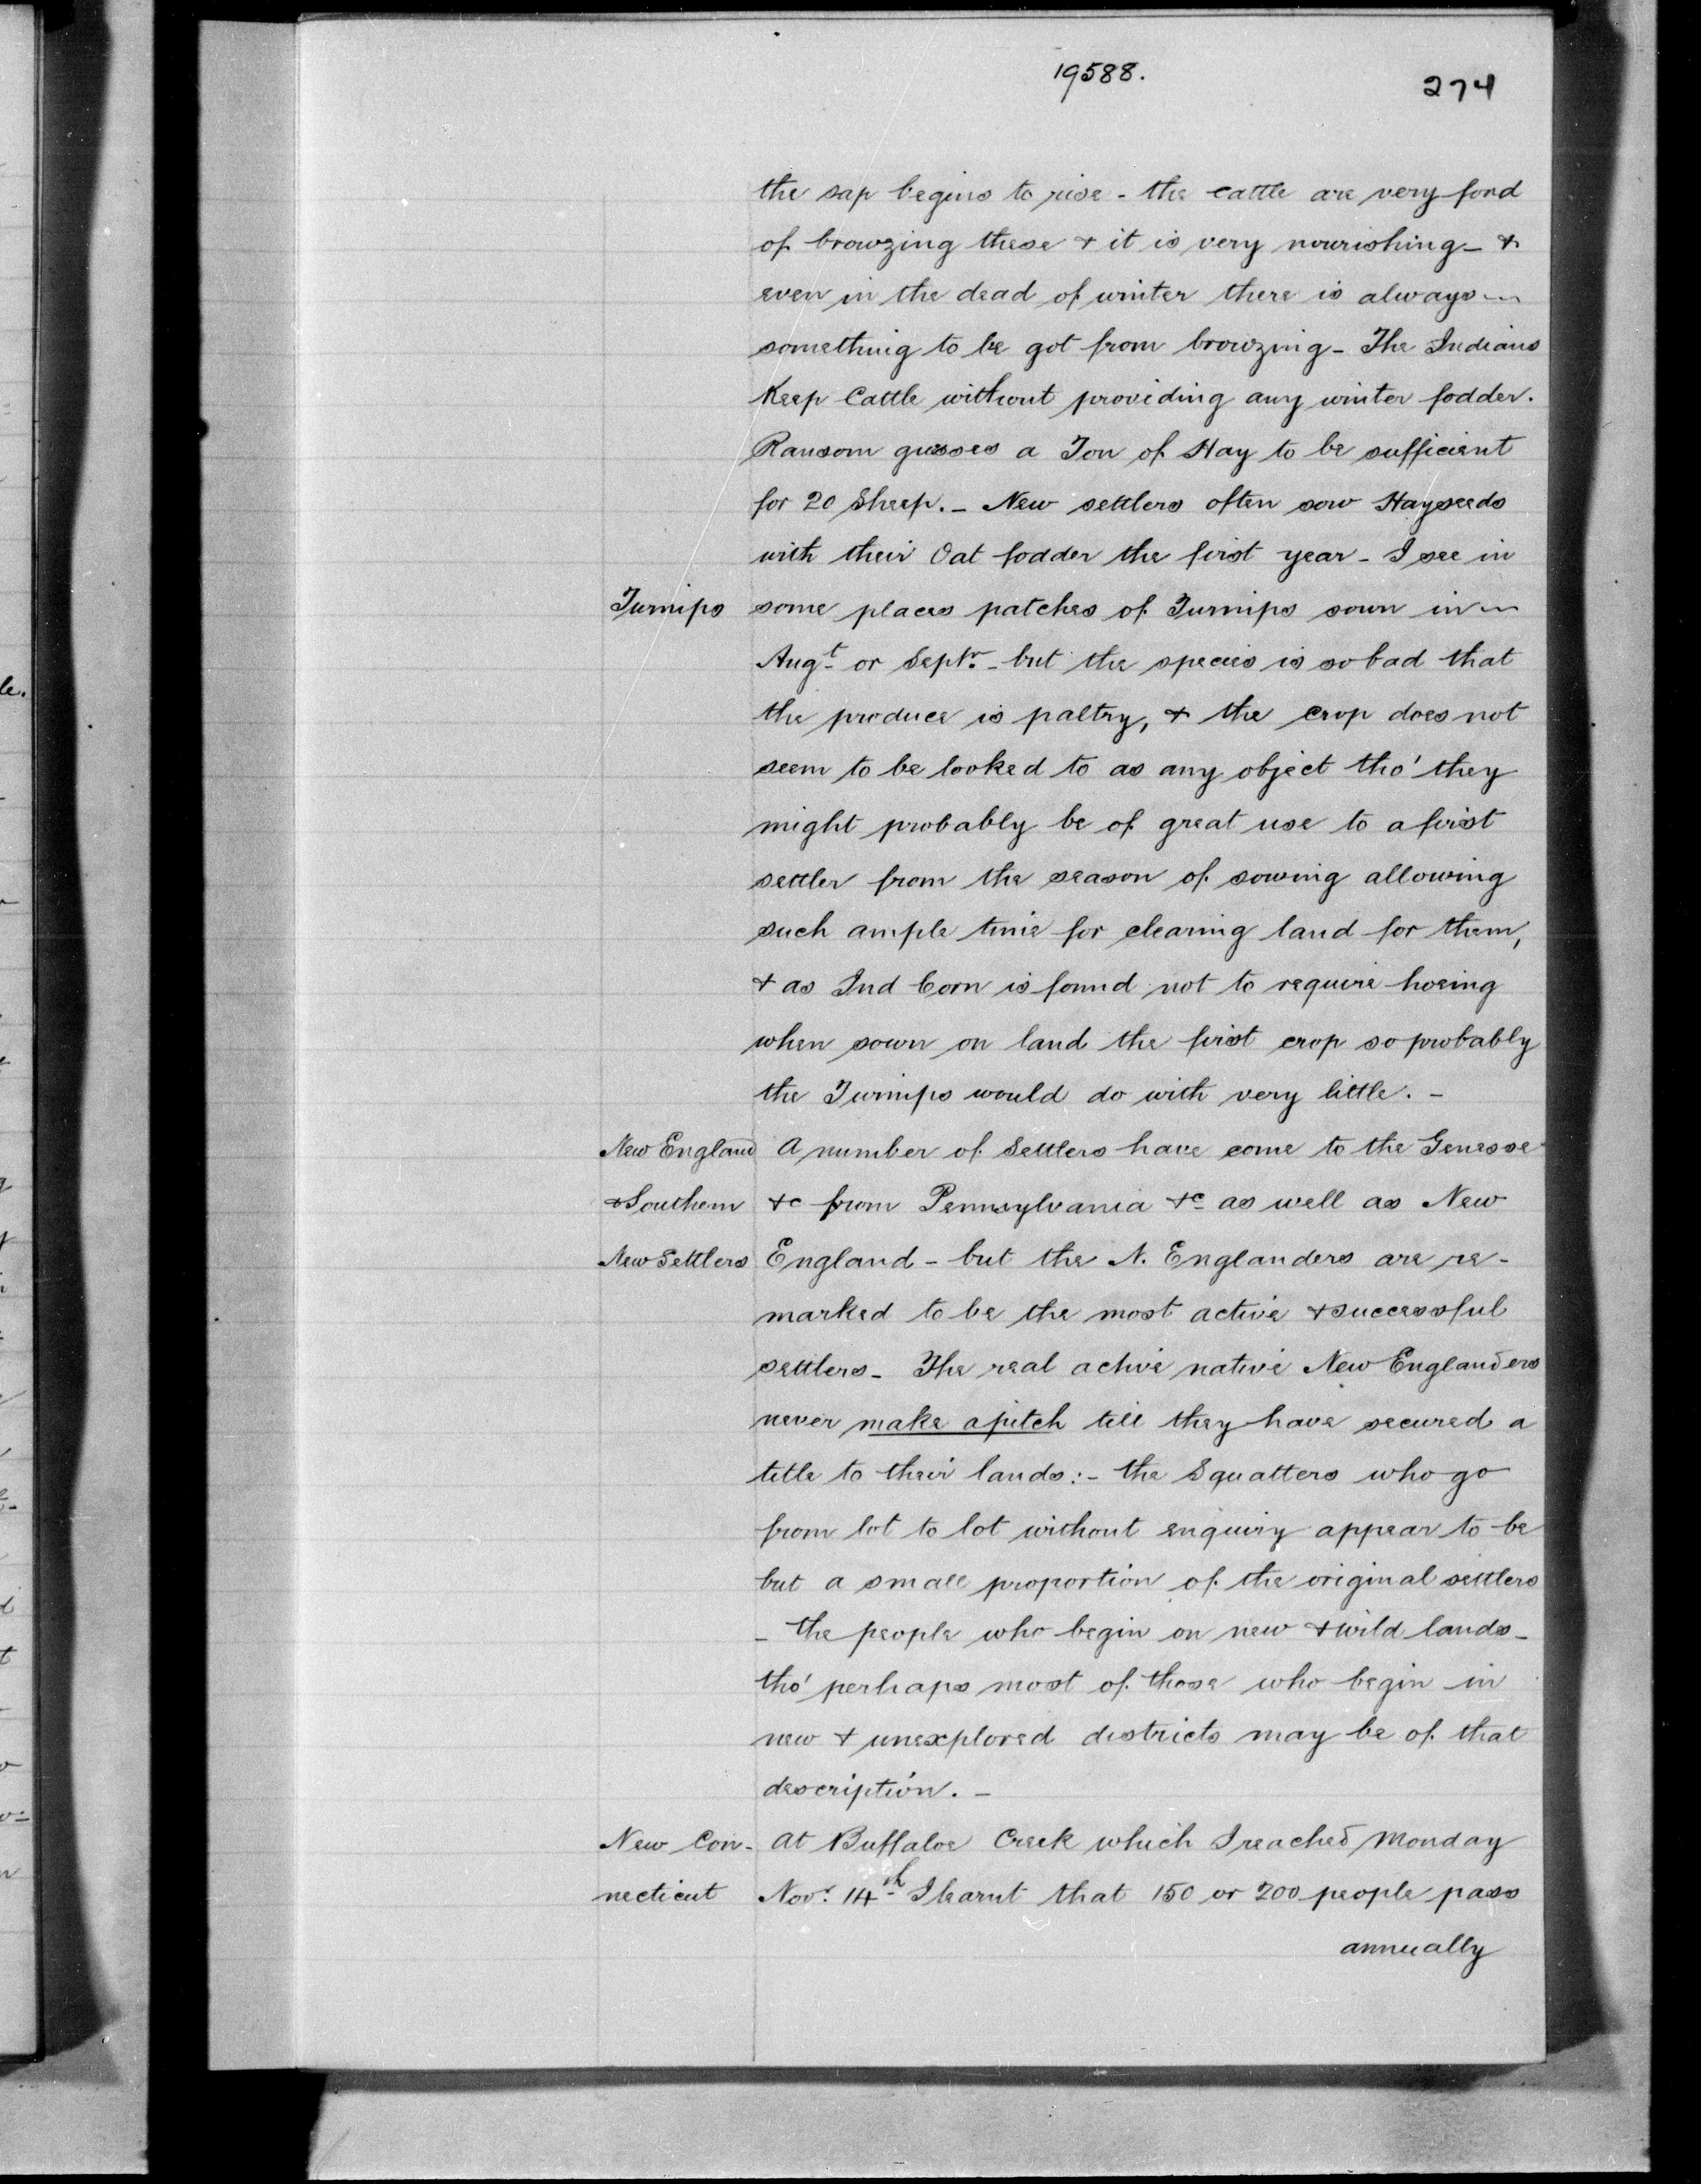 19588.
274
the sap begins to rise - the cattle are very fond
of browzing these & it is very nourishing - &
even in the dead of winter there is always
something to be got from browzing - The Indians
Keep Cattle without providing any winter fodder.
Ransom guesses a Ton of Hay to be sufficient
for 20 Sheep. - New settlers often sow Hayseeds
with their Oat fodder the first year - I see in
Turnips some places patches of Turnips sown in
Augt or Septr. - but the species is so bad that
the produce is paltry, & the crop does not
seem to be looked to as any object tho' they
might probably be of great use to a first
settler from the season of sowing allowing
such ample time for clearing land for them,
& as Ind Corn is found not to require hoeing
when sown on land the first crop so probably
the Turnips would do with very little. -
New England A number of Settlers have come to the Genesse
& Southern &c from Pennsylvania &c as well as New
New Settlers England - but the N. Englanders are re-
marked to be the most active & successful
settlers - The real active native New Englanders
never make a pitch till they have secured a
title to their lands: - the Squatters who go
from lot to lot without enquiry appear to be
but a small proportion of the original settlers
- the people who begin on new & wild lands -
tho' perhaps most of those who begin in
new & unexplored districts may be of that
description. -
New Con- At Buffaloe Creek which I reached Monday
necticut Novr. 14th I learnt that 150 or 200 people pass
annually